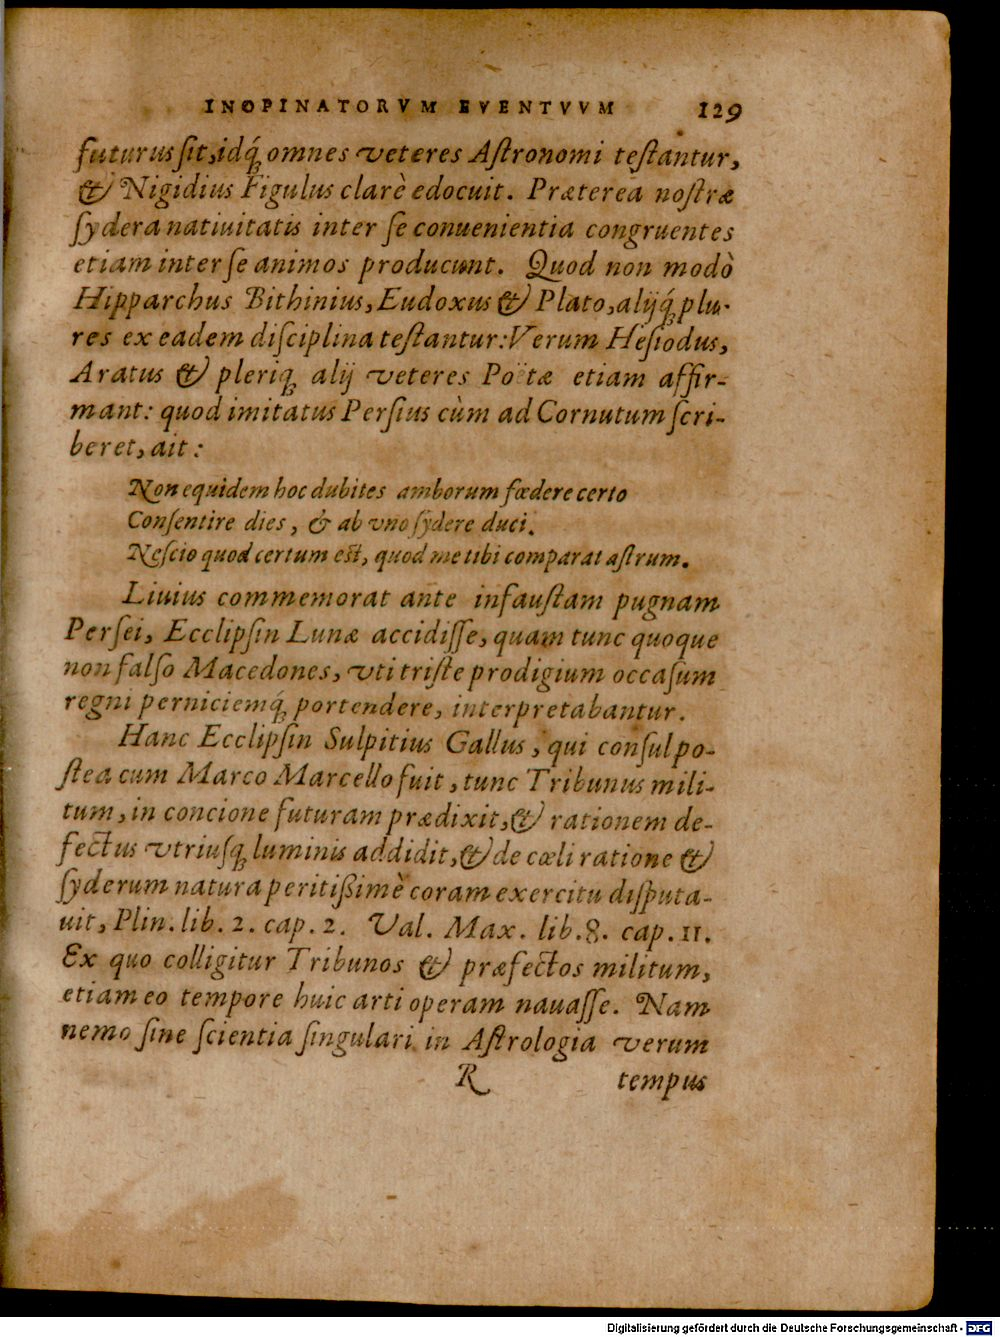 INOPINATORVM EVENTVVM 129
futurus ſit, idq́ omnes veteres Aſtronomi teſtantur,
& Nigidius Figulus clarè edocuit. Præterea noſtræ
ſydera natiuitatis inter ſe conuenientia congruentes
etiam inter ſe animos producunt. Quod non modò
Hipparchus Bithinius, Eudoxus & Plato, alijq́ plu-
res ex eadem diſciplina teſtantur: Verum Heſiodus,
Aratus & pleriq alij veteres Poëtæ etiam affir-
mant: quod imitatus Perſius cùm ad Cornutum ſcri-
beret, ait:
Non equidem hoc dubites amborum fœdere certo
Conſentire dies, & ab vno ſydere duci.
Neſcio quod certum eſt, quod me tibi comparat aſtrum.
Liuius commemorat ante infauſtam pugnam
Perſei, Ecclipſin Lunæ accidiſſe, quam tunc quoque
non falſo Macedones, vti triſte prodigium occaſum
regni perniciemq́ portendere, interpretabantur.
Hanc Ecclipſin Sulpitius Gallus, qui conſul po-
ſtea cum Marco Marcello fuit, tunc Tribunus mili-
tum, in concione futuram prædixit, & rationem de-
fectus vtriuſq luminis addidit, & de cœli ratione &
ſyderum natura peritißimè coram exercitu diſputa-
uit, Plin. lib. 2. cap. 2. Val. Max. lib. 8. cap. 11.
Ex quo colligitur Tribunos & præfectos militum,
etiam eo tempore huic arti operam nauaſſe. Nam
nemo ſine ſcientia ſingulari in Aſtrologia verum
R tempus
Digitalisierung gefördert durch die Deutsche Forschungsgemeinschaft - DFG